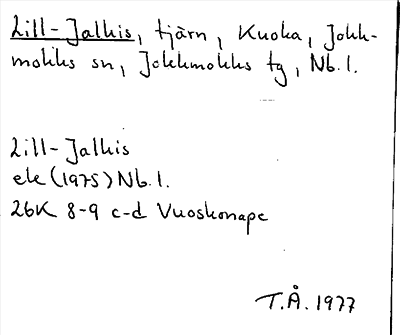 Lill-Jalkis, tjärn, Kuoka, Jokk-
mokks sn, Jokkmokks tg, Nb. l.
Lill-Jalkis
ek (1975) Nb. l.
26K 8-9 c-d Vuoskonape
T.Å. 1977